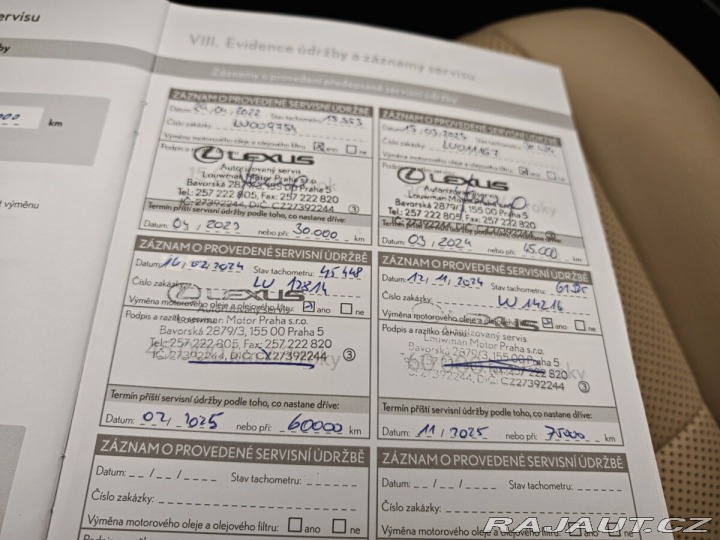 servisu
VIII. Evidence údržby a záznamy servisu
Záznamy o provedení předepsané servisní údržby
km
výměnu
ZÁZNAM O PROVEDENÉ SERVISNÍ ÚDRŽBĚ
Datum: 29/04/2022 Stav tachometru:
Číslo zakázky: LU009754
Výměna motorového oleje a olejového filtru: ano ne
Podpis a
LEXUS
Autorizovaný servis
Louwman Motor Praha s.r.o.
Bavorská 2879/3, 155 00 Praha 5
Tel.: 257 222 805, Fax: 257 222 820
IČ: 27392244, DIČ: CZ27392244 3
Termín příští servisní údržby podle toho, co nastane dříve:
Datum: 04/2023 nebo při: 30.000 km
ZÁZNAM O PROVEDENÉ SERVISNÍ ÚDRŽBĚ
Datum: Stav tachometru:
Číslo zakázky: LU011167
Výměna motorového oleje a olejového filtru: ano ne
LEXUS
Louwman Motor Praha s.r.o.
Bavorská 2879/3, 155 00 Praha 5
Tel.: 257 222 805, Fax: 257 222 820
IČ: 27392244, DIČ: CZ27392244
Termín příští servisní údržby podle toho, co nastane dříve:
Datum: 03/2024 nebo při: 45.000 km
ZÁZNAM O PROVEDENÉ SERVISNÍ ÚDRŽBĚ
Datum: 14/02/2024 Stav tachometru: 45 448
Číslo zakázky: LU 12814
LEXUS
Výměna motorového oleje a olejového filtru: ano ne
Autorizovaný servis
Podpis a razítko servisu:
Louwman Motor Praha s.r.o.
Bavorská 2879/3, 155 00 Praha 5
Tel.: 257 222 805, Fax: 257 222 820
IČ: 27392244, DIČ: CZ27392244 3
Termín příští servisní údržby podle toho, co nastane dříve:
Datum: 02/2025 nebo při: 60000 km
ZÁZNAM O PROVEDENÉ SERVISNÍ ÚDRŽBĚ
Datum: 12/11/2024 Stav tachometru:
Číslo zakázky: LU 14214
Výměna motorového oleje a olejového filtru: ano ne
LEXUS
Podpis a razítko servisu:
Louwman Motor Praha s.r.o.
Bavorská 2879/3, 155 00 Praha 5
Tel.: 257 222 805, Fax: 257 222 820
IČ: 27392244, DIČ: CZ27392244 3
Termín příští servisní údržby podle toho, co nastane dříve:
Datum: 11/2025 nebo při: 75000 km
ZÁZNAM O PROVEDENÉ SERVISNÍ ÚDRŽBĚ
Datum: _ _ / _ _ / _ _ Stav tachometru:
Číslo zakázky:
Výměna motorového oleje a olejového filtru: ano ne
ZÁZNAM O PROVEDENÉ SERVISNÍ ÚDRŽBĚ
Datum: _ _ / _ _ / _ _ Stav tachometru:
Číslo zakázky:
Výměna motorového oleje a olejového filtru:
RAJAUT.CZ